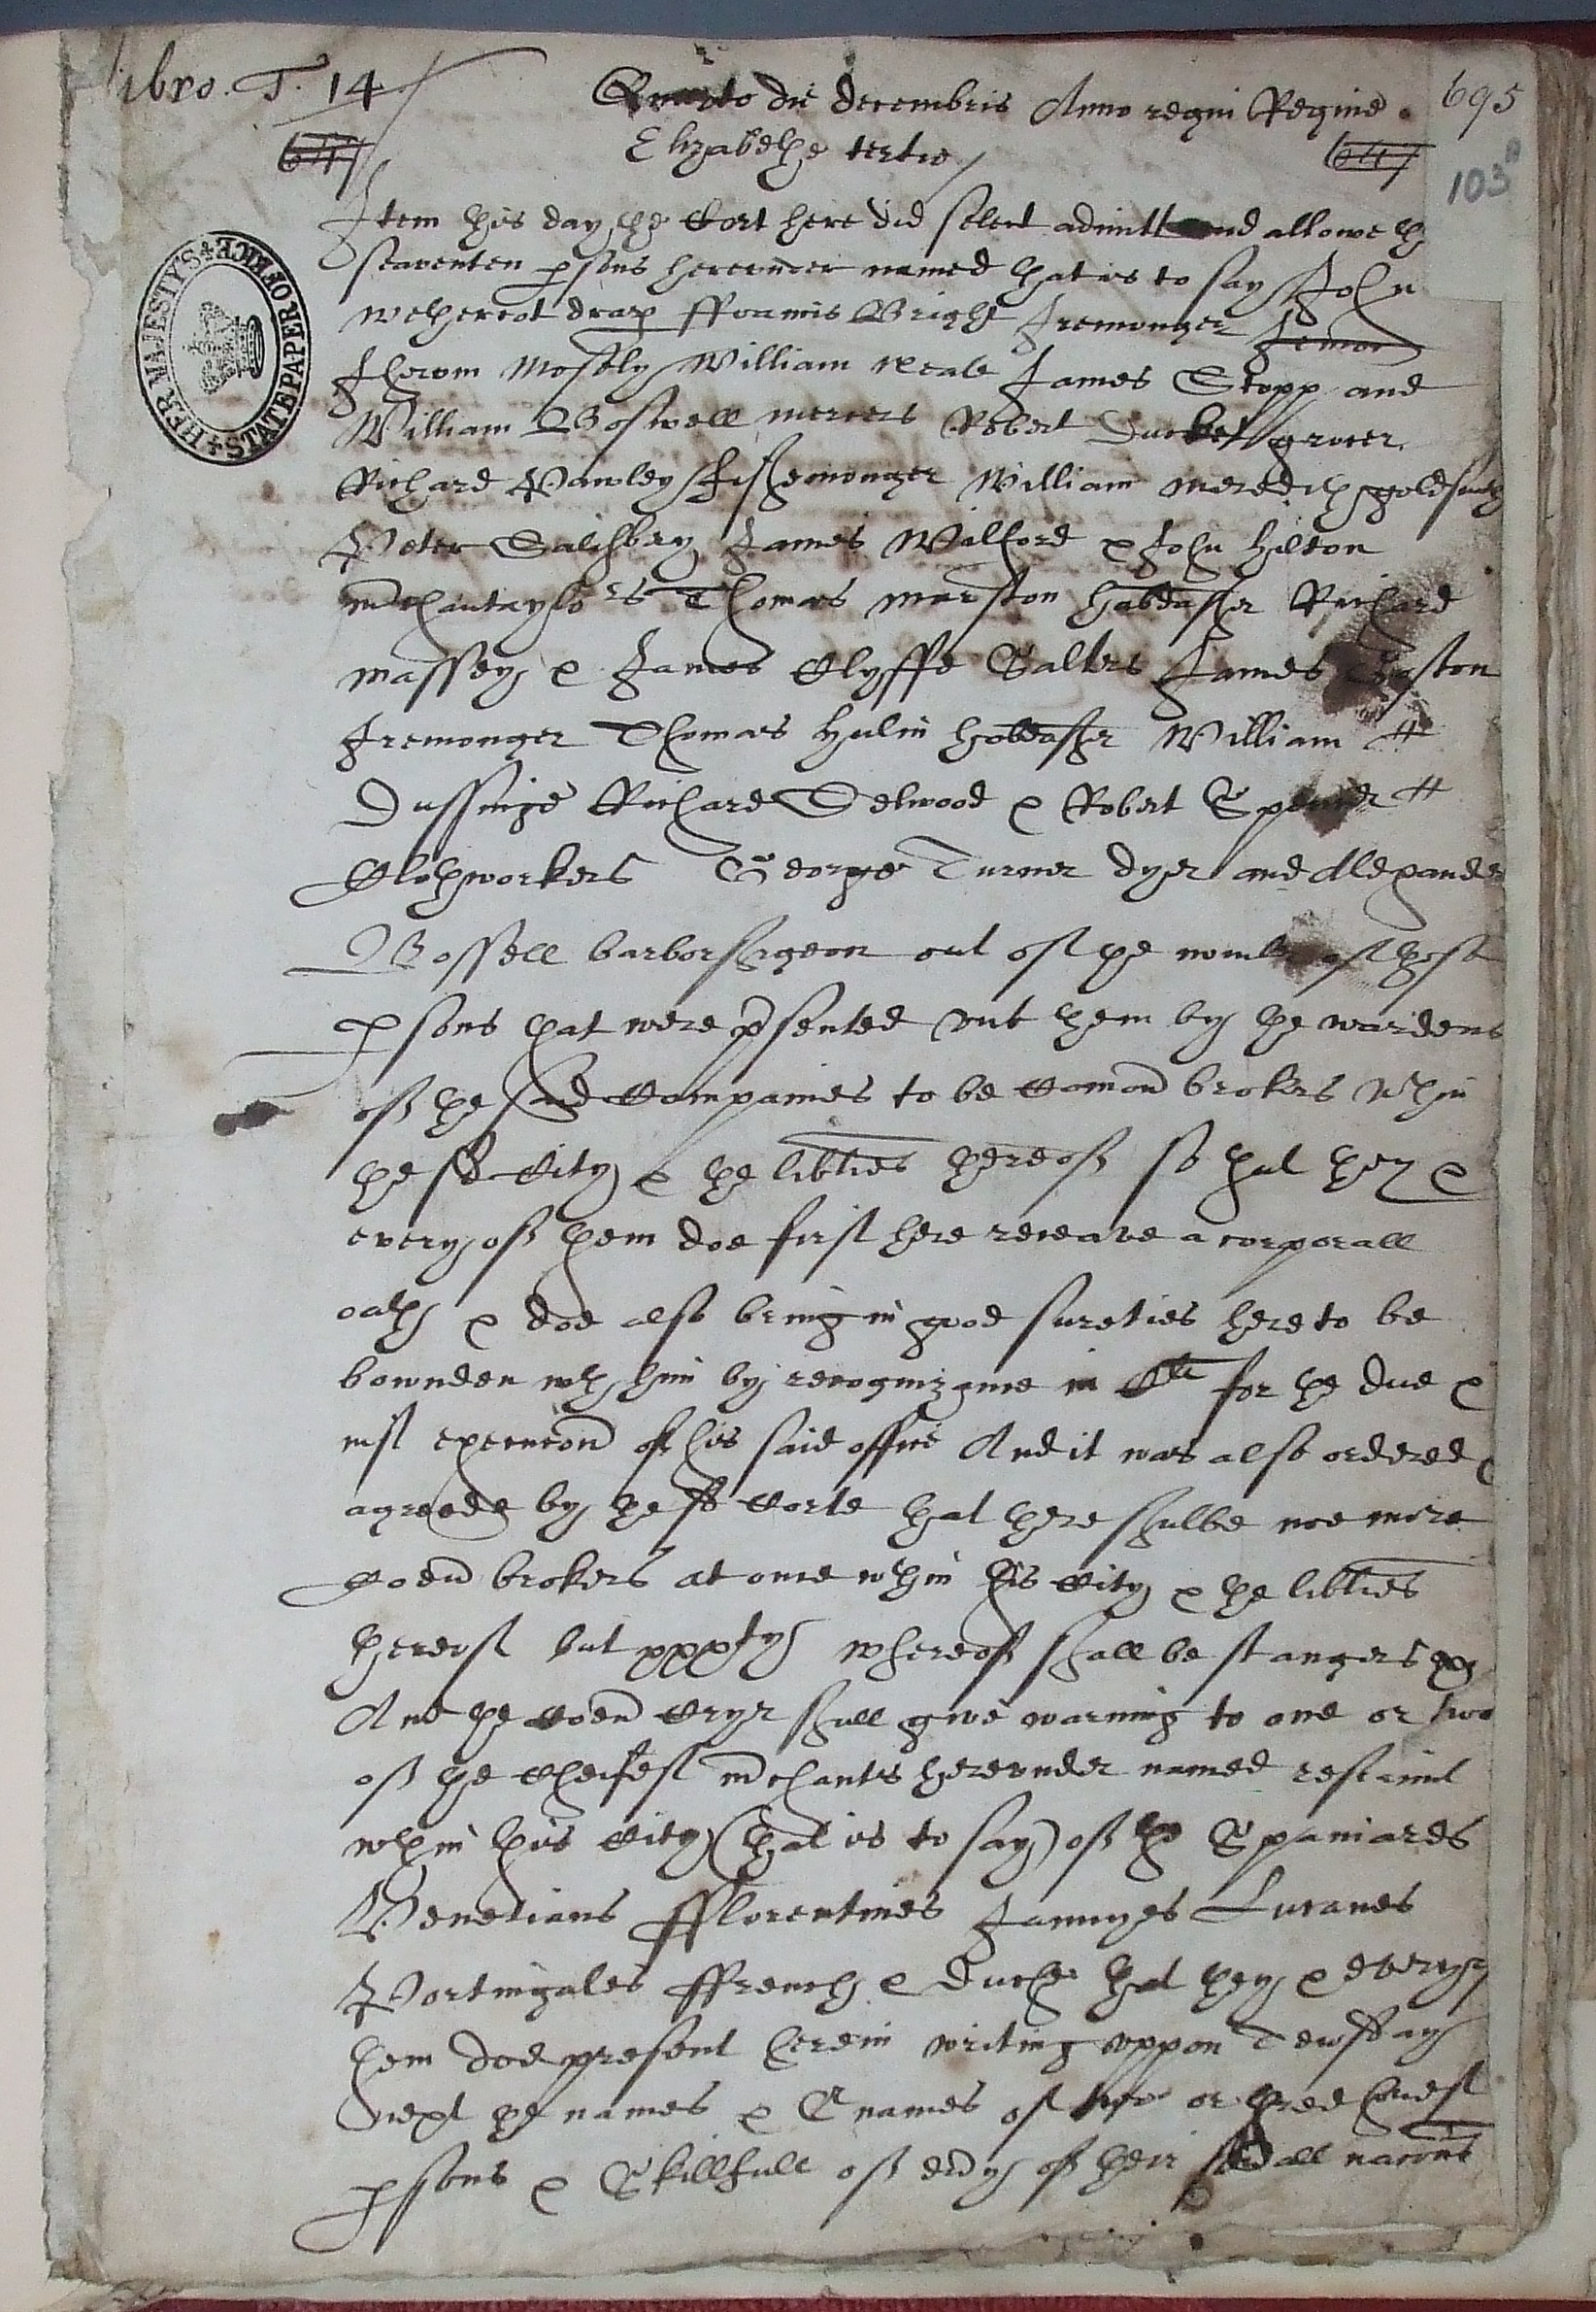 libro. T. 14
Quarto die decembris Anno regni Regine
695
Elizabethe tertio
647
647
103
Item this day the Cort here did select admitt and allowe the
seaventen psons hereunder named that is to say John
Wethereot drap ffrauncis Bright Iremonger
Jherom Mosely William Neale James Stopp and
William Boswell mercers Robert Ducket grocer
Richard Pawley fishemonger William Meredith goldsmith
Peter Salisbery James Wilford & John Hilton
mchantaylors Thomas Marston habdasher Richard
Massey & James Clyffe Salters James Gaston
Iremonger Thomas Hulin habdasher William
Dussinge Richard Selwood & Robert Spencer
Clothworkers George Turner dyer and Alexander
Bossell barborshrgeon out of the nomber of those
psons that were psented unto them by the wardens
of the said Companies to be Comon brokers wthin
the sd City & the libties thereof so that they &
every of them doe first here receave a corporall
oath & doe also bring in good sureties here to be
bownden wth him by recognizance in Cli for the due &
iust execucon of his said office And it was also ordered &
agreede by the sd Corte that there shalbe noe more
Coen brokers at once wthin this City & the libties
thereof but xxxty whereof shall be stangers
And the Coen Cryr shall give warning to one or two
of the Cheifest mchants hereunder named resiaint
wthin this City (that is to say) of the Spaniards
Venetians fflorentines Januyes Lucanes
Portingales ffrench & Duche that they & every of
them doe present here in writing uppon Tewsday
next the names & Snames of two or three honest
psons & Skillfull of evy of their sevall nacons
HER MAJESTY'S STATE PAPER OFFICE